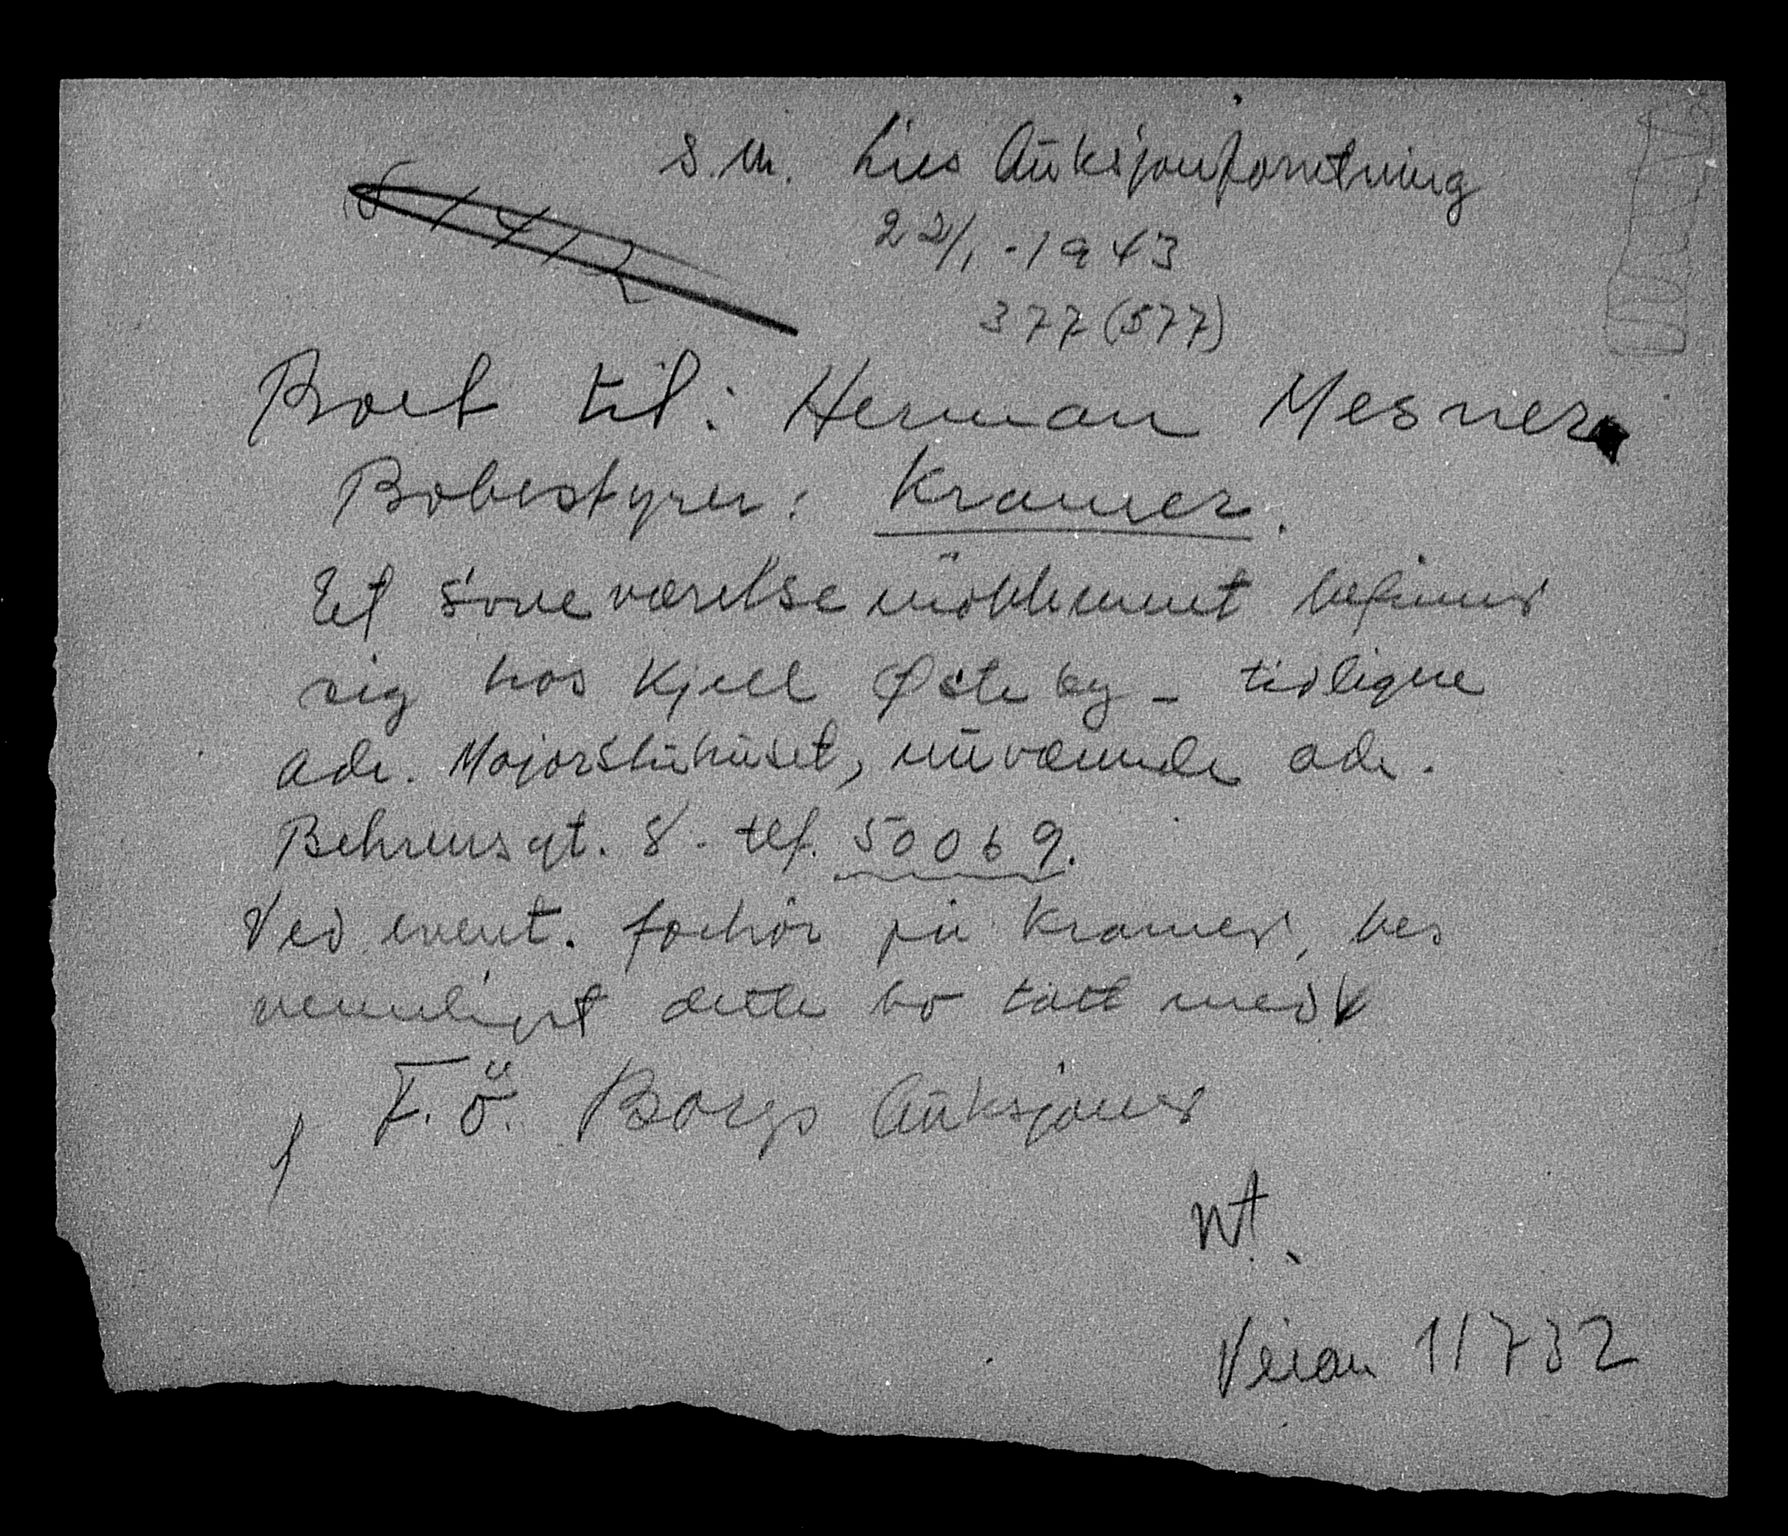 S. M. Lies Auksjonsforretning
22/1 - 1943
377 (577)
Boet til: Herman Mesner
Bobestyrer: Kramer.
Et soveværelsemöblement befinner
sig hos Kjell Østeby - tidligere
adr. Majorstuhuset, nuværende adr.
Behrensgt. 8 - tlf. 50069.
Ved event. forhör på Kramer, bes
vennligst dette bo tatt med
F. Ö. Borgs Auksjoner
Veian 11732